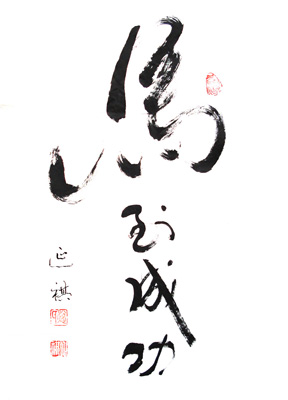 馬到成功
延祺